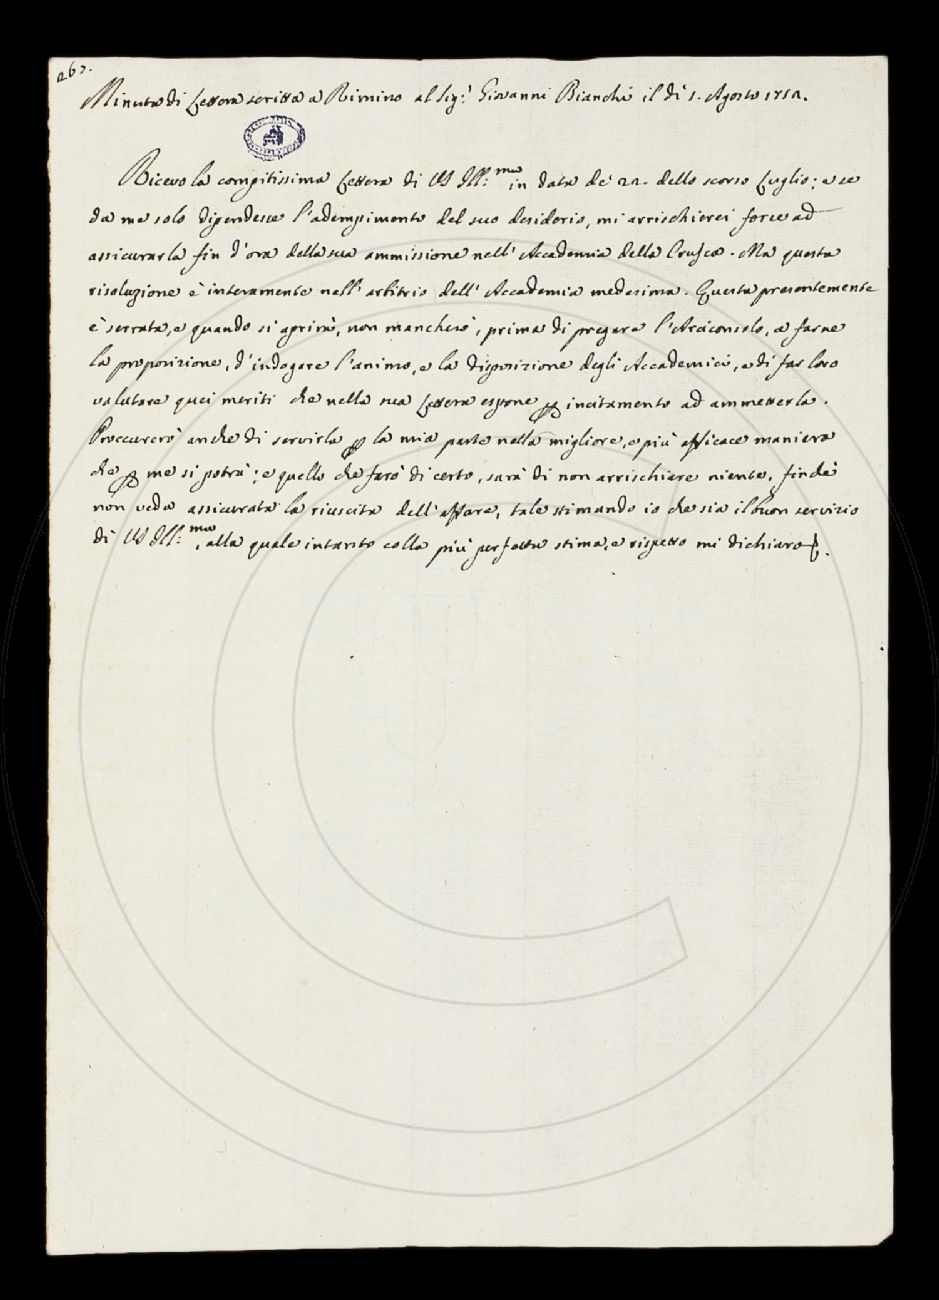 267.
Minuta di Lettera scritta a Rimino al Sig.r Giovanni Bianchi il dì 1. Agosto
Ricevo la compitissima Lettera di VS Ill:ma in data de' 22. dello scorso Luglio; e se
da me solo dipendesse l'adempimento del suo desiderio, mi arrischierei forse ad
assicurarla fin d'ora della sua ammissione nell'Accademia della Crusca. Ma questa
risoluzione è interamente nell'arbitrio dell'Accademia medesima. Questa presentemente
è serrata, e quando si aprirà, non mancherò, prima di pregare l'Arciconsolo, a farne
la proposizione, d'indagare l'animo, e la disposizione degli Accademici, e di far loro
valutare quei meriti che nella sua Lettera espone ꝑ incitamento ad ammetterla.
Proccurerò anche di servirla ꝑ la mia parte nella migliore, e più efficace maniera
che ꝑ me si potrà; e quello che farò di certo, sarà di non arrischiare niente, finchè
non veda assicurata la riuscita dell'affare, tale stimando io che sia il buon servizio
di VS Ill:ma, alla quale intanto colla più perfetta stima, e rispetto mi dichiaro